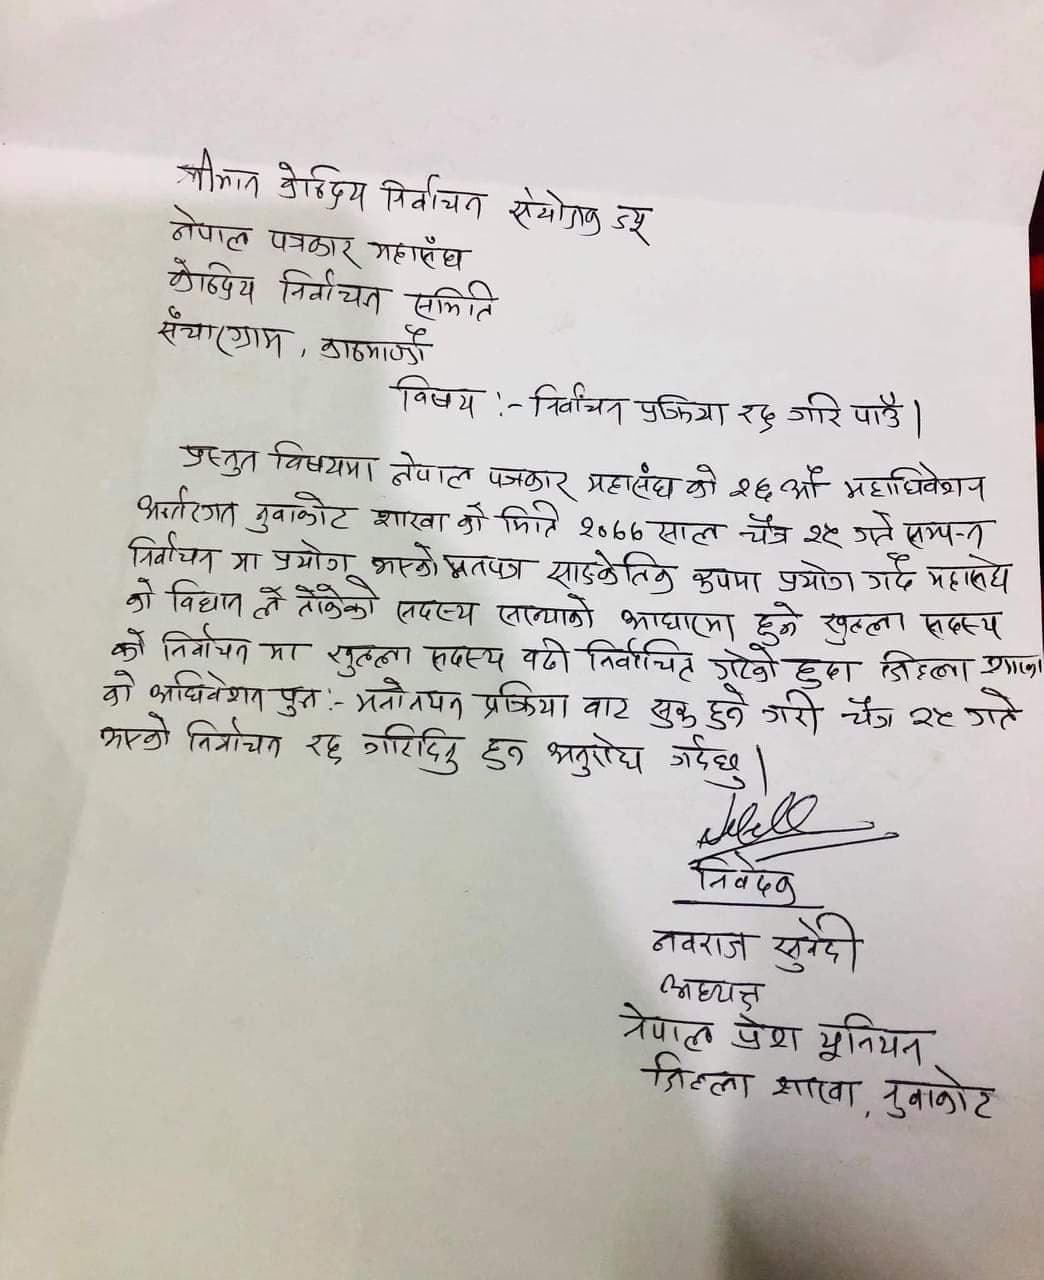 श्रीमान केन्द्रिय निर्वाचन संयोजक ज्यू
नेपाल पत्रकार महासंघ
केन्द्रिय निर्वाचन समिति
संचारग्राम, काठमाडौं
विषय :- निर्वाचन प्रक्रिया रद्द गरि पाउँ।
प्रस्तुत विषयमा नेपाल पत्रकार महासंघ को २६ औं महाधिवेशन
अर्न्तरगत नुवाकोट शाखा को मिति २०७७ साल चैत्र २५ गते सम्पन्न
निर्वाचन मा प्रयोग भएको मतपत्र साङकेतिक रुपमा प्रयोग गर्दै महासंघ
को विधान ले तोकेको सदस्य संख्याको आधारमा हुने खुल्ला सदस्य
को निर्वाचन मा खुल्ला सदस्य बढी निर्वाचित गरेको हुदा जिल्ला शाखा
को अधिवेशन पुन:- मनोनयन प्रक्रिया बाट सुरु हुने गरी चैत्र २५ गते
भएको निर्वाचन रद्द गरिदिनु हुन अनुरोध गर्दछु।
निवेदक
नवराज सुवेदी
अध्यक्ष
नेपाल प्रेश यूनियन
जिल्ला शाखा, नुवाकोट